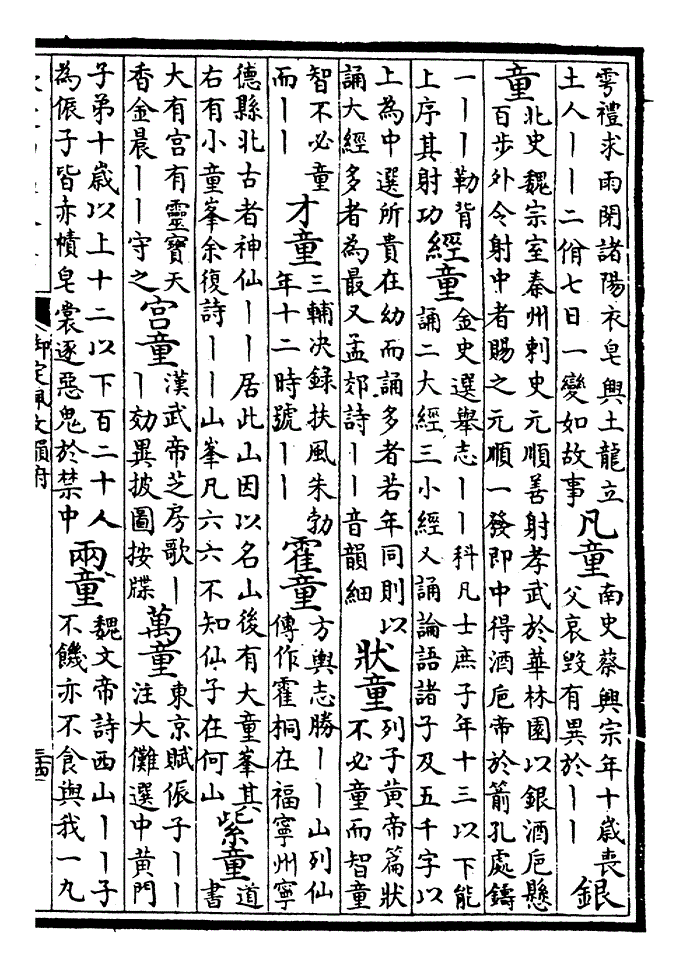 雩禮求雨閉諸陽衣皂興土龍立
土人｜｜二佾七日一變如故事
凡童
南史蔡興宗年十歳喪
父哀毁有異於｜｜
銀
童
北史魏宗室秦州刺史元順善射孝武於華林園以銀酒巵懸
百步外令射中者賜之元順一發即中得酒巵帝於箭孔處鑄
一｜｜勒背
上序其射功
經童
金史選舉志｜｜科凡士庶子年十三以下能
誦二大經三小經又誦論語諸子及五千字以
上為中選所貴在幼而誦多者若年同則以
誦大經多者為最又孟郊詩｜｜音韻細
狀童
列子黄帝篇狀
不必童而智童
智不必童
而｜｜
才童
三輔决録扶風朱勃
年十二時號｜｜
霍童
方輿志勝｜｜山列仙
傳作霍桐在福寧州寧
德縣北古者神仙｜｜居此山因以名山後有大童峯其
右有小童峯余復詩｜｜山峯凡六六不知仙子在何山
紫童
道
書
大有宫有靈寶天
香金晨｜｜守之
宫童
漢武帝芝房歌｜
｜効異披圖按牒
萬童
東京賦侲子｜｜
注大儺選中黄門
子弟十歳以上十二以下百二十人
為侲子皆赤幘皂裳逐惡鬼於禁中
兩童
魏文帝詩西山｜｜子
不饑亦不食與我一九
御定佩文韻府